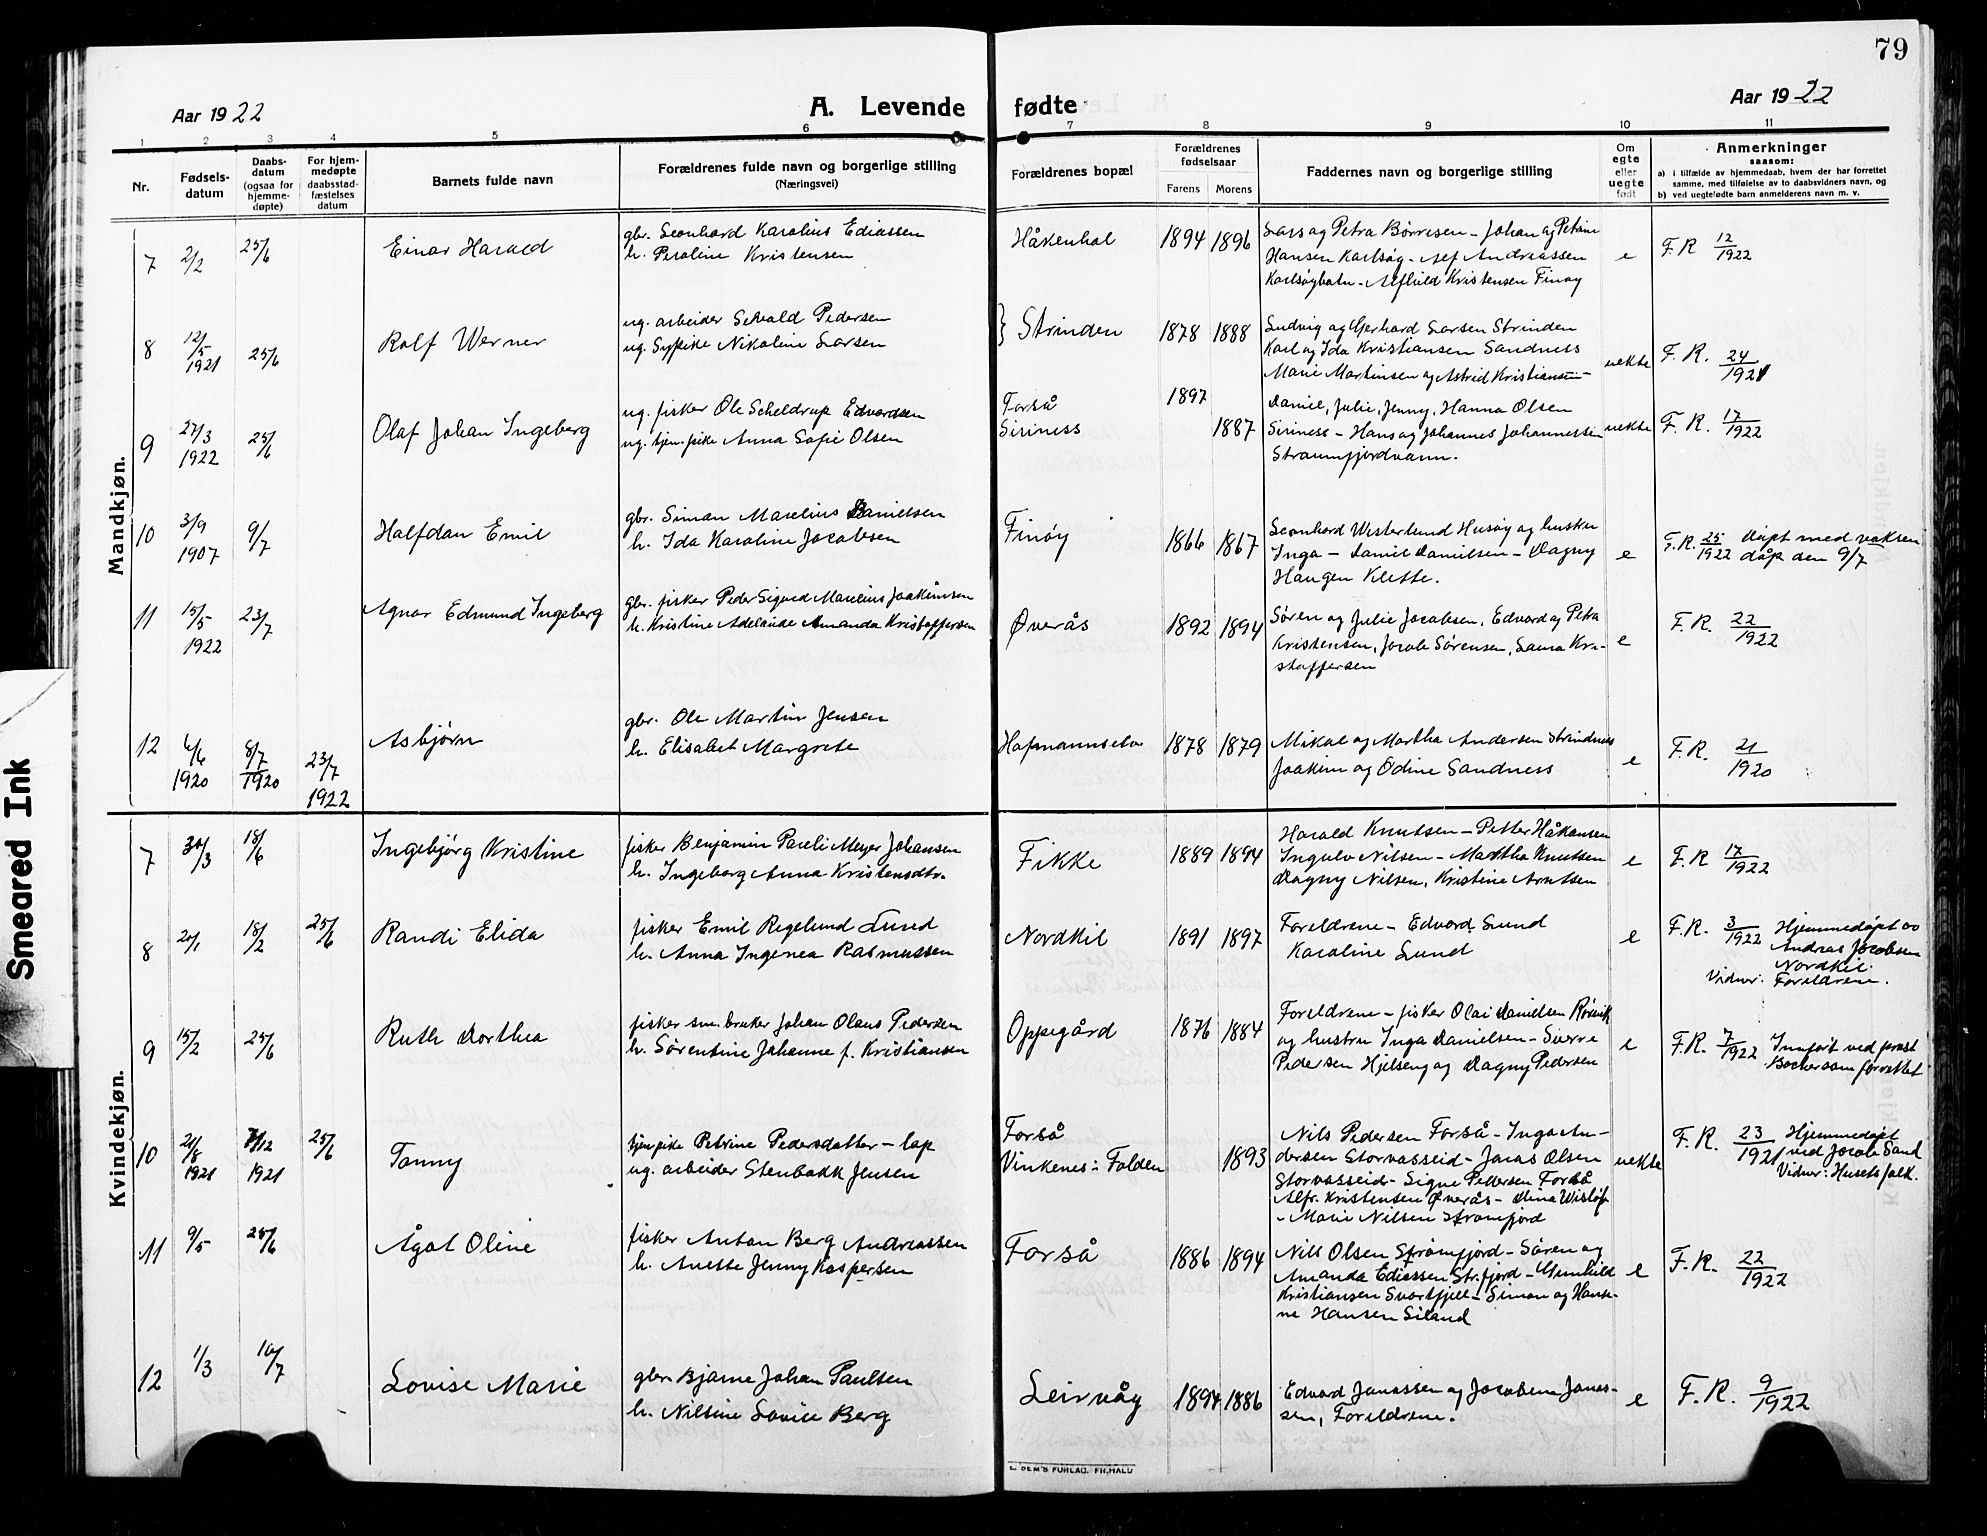 79
Aar 1922
A. Levende fødte
Aar 1922
1 2 3 4 5 6 7 8 9 10 11
Nr.
Fødsels-
datum
Daabs-
datum
(ogsaa for
hjemme-
døpte)
For hjem-
medøpte
daabsstad-
fæstelses
datum
Barnets fulde navn
Forældrenes fulde navn og borgerlige stilling
(Næringsvei)
Forældrenes bopæl
Forældrenes
fødselsaar
Farens Morens
Faddernes navn og borgerlige stilling
Om
egte
eller
uegte
født
Anmerkninger
saasom:
a) i tilfælde av hjemmedaab, hvem der har forrettet
samme, med tilføielse av to daabsvidners navn, og
b) ved uegtefødte barn anmelderens navn m. v.
Mandkjøn.
7 2/2 25/6 Einar Harald
gbr. Leonhard Karolius Ediassen
h. Paroline Kristensen
Håkenhal 1894 1896
Lars og Petra Børresen - Johan og Petrine
Hansen Karlsøy - Alf Andreassen
Karlsøybatn - Alfhild Kristensen Finøy
e F.R 12/1922
8 12/5 1921 25/6 Rolf Werner
ug. arbeider Sevald Pedersen
ug. Sypike Nikoline Larsen
} Strinden 1878 1888
Ludvig og Gerhard Larsen Strinden
Karl og Ida Kristiansen Sandness
Marie Martinsen og Astrid Kristiansen -
uekte F.R. 24/1921
9 27/3 1922 25/6 Olaf Johan Ingeberg
ug. fisker Ole Scheldrup Edvardsen
ug. tjen. pike Anna Sofie Olsen
Forså
Siriness
1897
1887
Daniel, Julie, Jenny, Hanna Olsen
Siriness - Hans og Johannes Johannessen
Straumfjordvann.
uekte F.R. 17/1922
10 3/9 1907 9/7 Halfdan Emil
gbr. Simon Marelius Danielsen
h. Ida Karoline Jacobsen
Finöy 1866 1867
Leonhard Westerlund Husøy og hustru
Inga - Daniel Danielsen - Dagny
Haugen Klette.
e F.R. 25/1922 døpt med voksen
dåp den 9/7
11 15/5 1922 23/7 Agnar Edmund Ingeberg
gbr. fisker Peder Sigurd Marelius Joakimsen
h. Kristine Adelaide Amanda Kristoffersen
Øverås 1892 1894
Søren og Julie Jacobsen, Edvard og Petra
Kristensen, Jacob Sørensen, Laura Kri-
stoffersen
e F.R. 22/1922
12 6/6 1920 8/7 1920 23/7 1922 Asbjørn
gbr. Ole Martin Jensen
h. Elisabet Margrete
1878 1879
Mikal og Martha Andersen Strindness
Joakim og Odine Sandness
e F.R. 21/1920
Kvindekjøn.
7 30/3 18/6 Ingebjørg Kristine
fisker Benjamin Pareli Meyer Johansen
h. Ingeborg Anna Kristensdtr.
Fikke 1889 1894
Harald Knutsen - Petter Håkansen
Ingulv Nilsen - Martha Knutsen
Dagny Nilsen, Kristine Arntsen
e F.R 17/1922
8 20/1 18/2 25/6 Randi Elida
fisker Emil Regelund Lund
h. Anna Ingenea Rasmussen
Nordkil 1891 1897
Foreldrene - Edvard Lund
Karoline Lund
e F.R. 3/1922 Hjemmedøpt av
Andreas Jacobsen
Nordkil.
Vidner: Foreldrene.
9 15/2 25/6 Ruth Dorthea
fisker sm. bruker Johan Olaus Pedersen
h. Sørentine Johanne f. Kristiansen
Oppegård 1876 1884
Foreldrene - fisker Olai Danielsen Rösvik
og hustru Inga Danielsen - Sverre
Pedersen Hjelseng og Dagny Pedersen
e F.R. 7/1922 Innført ved prest
Bocher som forrettet
10 21/8 1921 7/12 1921 25/6 Tanny
tjen pike Petrine Pedersdatter - lap
ug. arbeider Stenbakk Jensen
Forså
Vinkenes : Folden
1893
Nils Pedersen Forså - Inga An-
dersen Storvasseid - Jonas Olsen
Storvasseid - Signe Pedersen Forså
Alfr. Kristensen Øverås - Dina Wisløf
- Marie Nilsen Strømfjord
uekte F.R. 23/1921 Hjemmedøpt
ved Jacob Sand
Vidner: Husets folk.
11 9/5 25/6 Ågot Oline
fisker Anton Berg Andreassen
h. Anette Jenny Kaspersen
Forså 1886 1894
Nils Olsen Strømfjord - Søren og
Amanda Ediassen Str.fjord - Gunhild
Kristiansen Svortfjell - Simon og Hans-
ne Hansen Siland
e F.R. 22/1922
12 1/3 10/7 Lovise Marie
gbr. Bjarne Johan Paulsen
h. Nilsine Lovise Berg
Leirvåg 1894 1886
Edvard Jonassen og Jacobine Jonas-
sen, Foreldrene.
e F.R. 9/1922
E. SEM'S FORLAG. FR.HALD
Smeared Ink